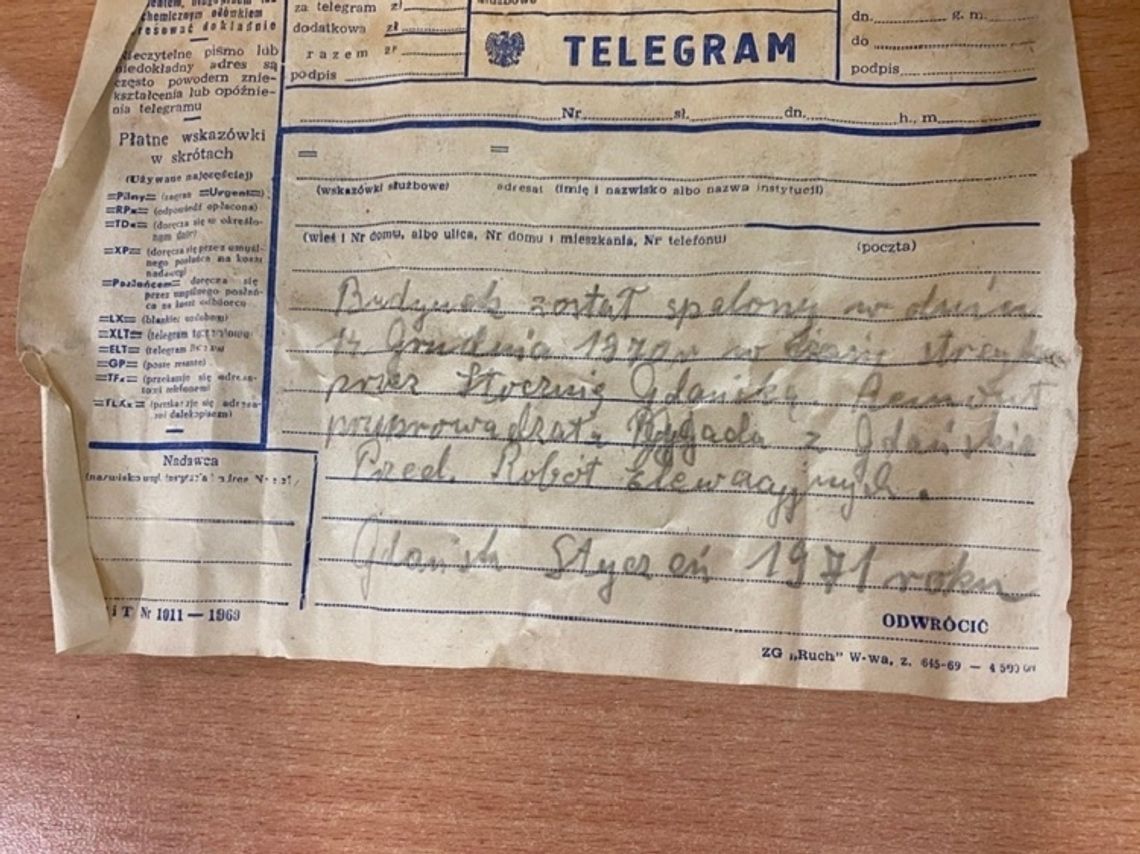 chemicznym ołówkiem
dokładnie
Nieczytelne pismo lub
niedokładny adres są
często powodem znie-
kształcenia lub opóźnie-
nia telegramu
Płatne wskazówki
w skrótach
(Używane najczęściej)
=Pilny= (zagran =Urgent=)
=RPx= (odpowiedź opłacona)
=TDx= (doręcza się w określo-
nym dniu)
=XP= (doręcza się przez umyśl-
nego posłańca na koszt
nadawcy)
=Posłańcem= doręcza się
przez umyślnego posłań-
ca na koszt odbiorcy
=LX= (blankiet ozdobny)
=XLT= (telegram
=ELT= (telegram
=GP= (poste restante)
=TFx= (przekazuje się adresa-
towi telefonem)
=TLXx= (przekazuje się adresa-
towi dalekopisem)
Nadawca
za telegram zł
dodatkowa zł
razem zł
podpis
TELEGRAM
dn. g. m.
do
podpis
Nr sł. dn. h., m.
= =
(wskazówki służbowe) adresat (imię i nazwisko albo nazwa instytucji)
(wieś i Nr domu, albo ulica, Nr domu i mieszkania, Nr telefonu) (poczta)
Budynek został spalony w dniu
14 Grudnia 1970r w czasie
przez Stocznię Gdańską. Remont
przyprowadzała z Gdańskie
Przed. Robót Elewacyjnych.
Gdańsk Styczeń 1971 roku
iT Nr 1011 — 1969
ODWRÓCIĆ
ZG „Ruch" W-wa, z. 645-69 — 4 500